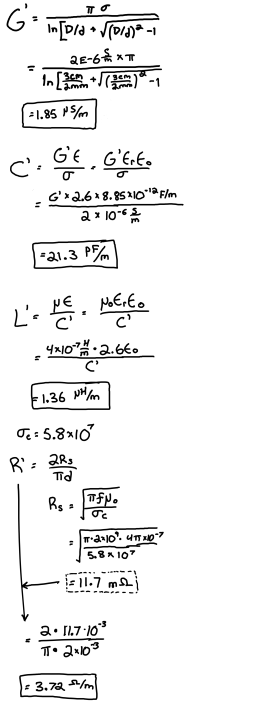 G' = π σ / ln[D/d + √((D/d)² -1
= 2E-6 S/m × π / ln[3cm/2mm + √((3cm/2mm)² -1
=1.85 µS/m
C' = G'ε/σ = G'εrε0/σ
= G' × 2.6 × 8.85×10⁻¹² F/m / 2 × 10⁻⁶ S/m
=21.3 pF/m
L' = µε/C' = µ0εrε0/C'
= 4×10⁻⁷ H/m · 2.6ε0 / C'
=1.36 µH/m
σc = 5.8×10⁷
R' = 2Rs/πd
Rs = √(πfµ0/σc)
= √(π·2×10⁹·4π×10⁻⁷ / 5.8×10⁷)
=11.7 mΩ
= 2·11.7·10⁻³ / π·2×10⁻³
=3.72 Ω/m